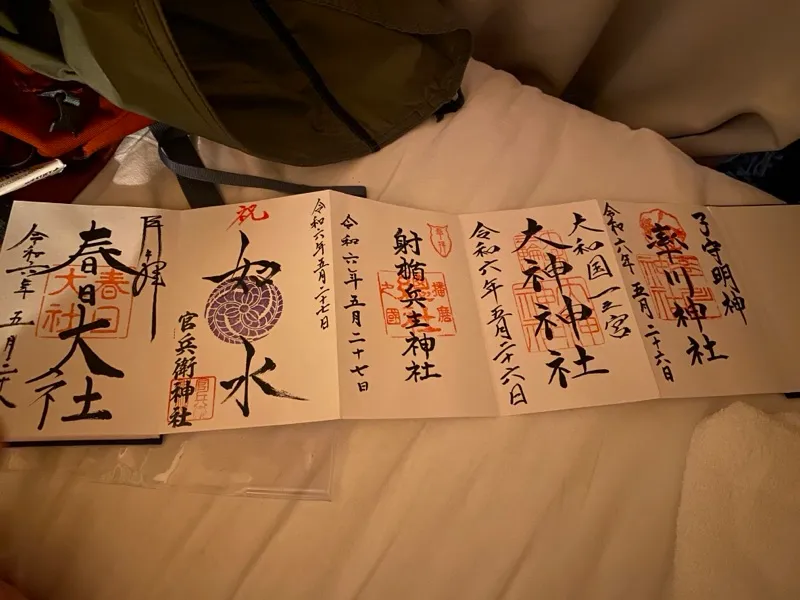 子守明神
率川神社
令和六年五月二十六日
大和国一之宮
大神神社
令和六年五月二十六日
奉拝
射楯兵主神社
播磨
之國
令和六年五月二十七日
令和六年五月二十七日
祝
如水
官兵衛神社
奉拝
春日大社
春日
大社
令和六年五月二十